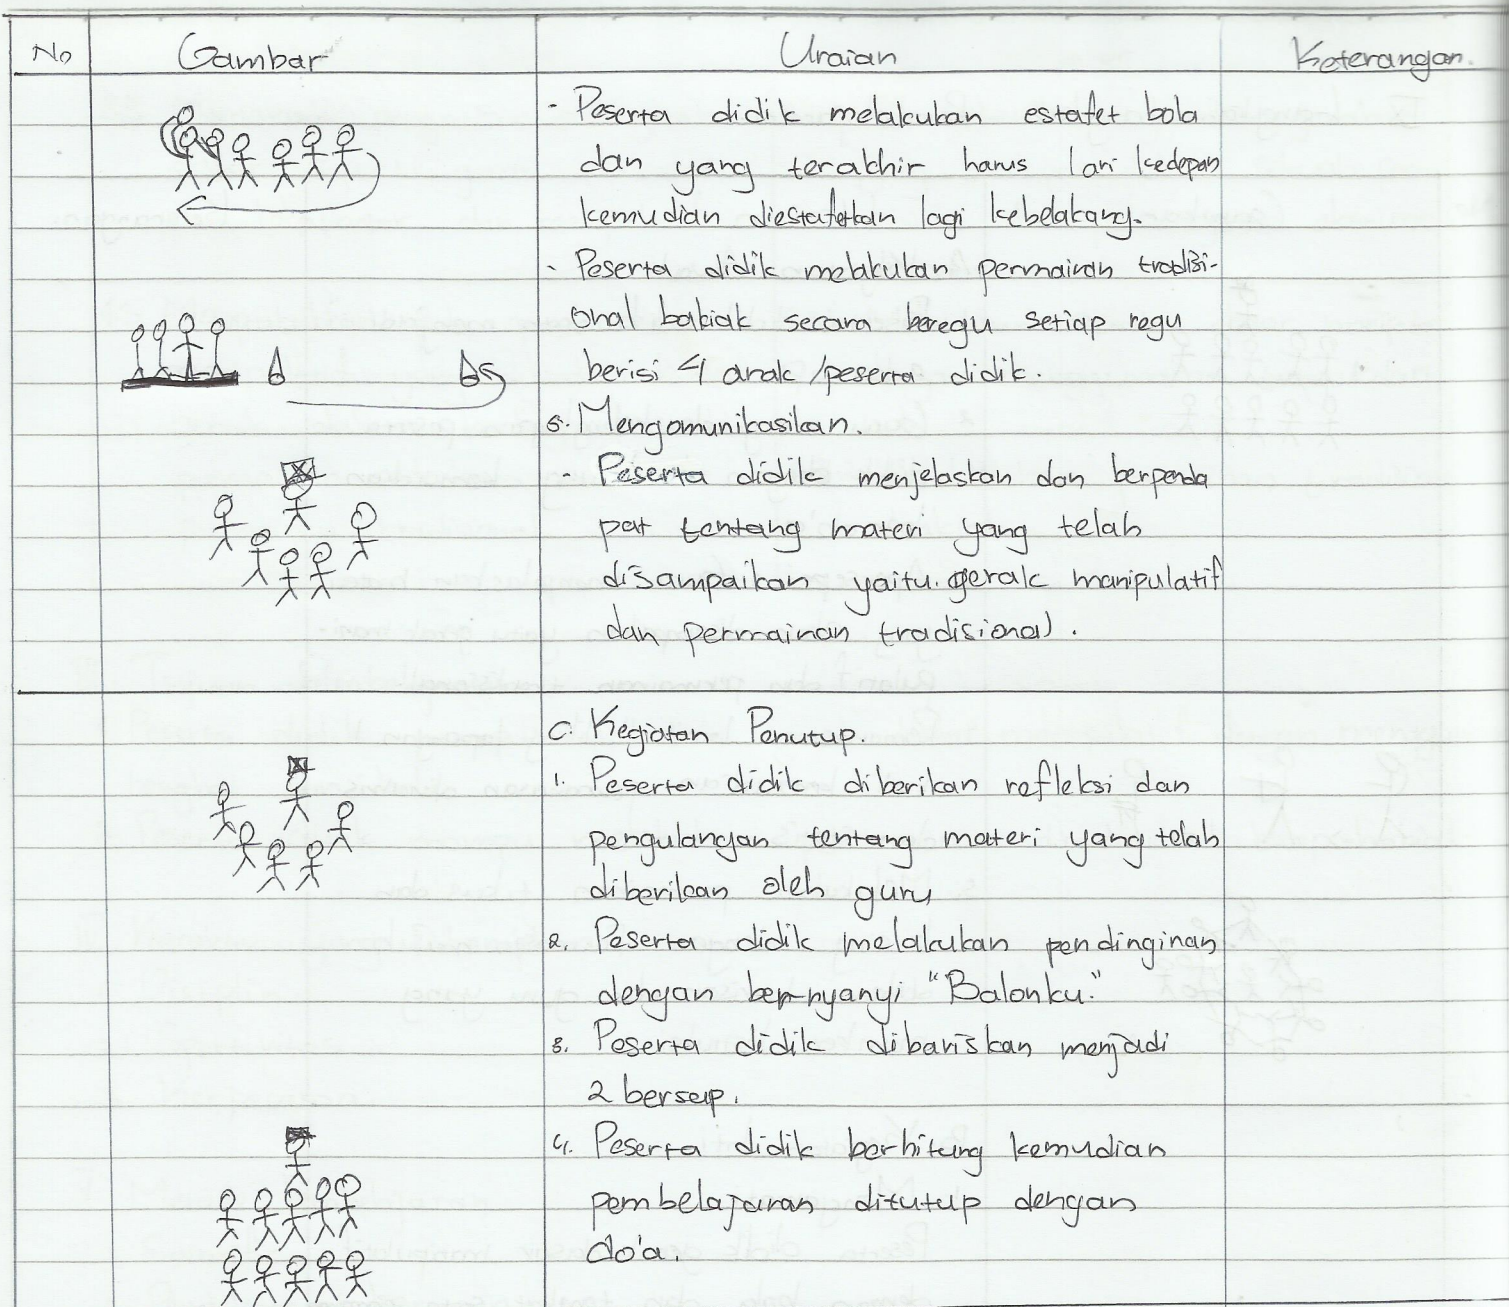 No Gambar Uraian Keterangan.
- Peserta didik melakukan estafet bola
dan yang terakhir harus lari kedepan
kemudian diestafetkan lagi kebelakang.
- Peserta didik melakukan permainan tradisi-
onal bakiak secara beregu setiap regu
berisi 4 anak /peserta didik.
5. Mengomunikasikan.
- Peserta didik menjelaskan dan berpenda
pat tentang materi yang telah
disampaikan yaitu gerak manipulatif
dan permainan tradisional.
C. Kegiatan Penutup.
1. Peserta didik diberikan refleksi dan
pengulangan tentang materi yang telah
diberikan oleh guru
2. Peserta didik melakukan pendinginan
dengan bernyanyi "Balonku."
3. Peserta didik dibariskan menjadi
2 bersap.
4. Peserta didik berhitung kemudian
pembelajaran ditutup dengan
do'a.